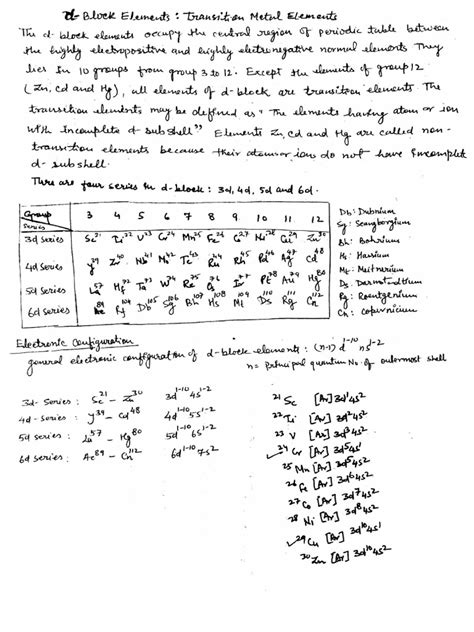 d-Block Elements: Transition Metal Elements
The d-block elements occupy the central region of periodic table between
the highly electropositive and highly electronegative normal elements They
lies In 10 groups from group 3 to 12. Except the elements of group 12
(Zn, Cd and Hg), all elements of d-block are transition elements. The
transition elements may be defined as "The elements having atom or ion
with Incomplete d subshell" Elements Zn, Cd and Hg are called non-
transition elements because their atom or ions do not have Incomplete
d-subshell.
There are four series in d-block: 3d, 4d, 5d and 6d.
Group 3 4 5 6 7 8 9 10 11 12
Series
3d series Sc21 Ti22 V23 Cr24 Mn25 Fe26 Co27 Ni28 Cu29 Zn30
4d series Y39 Zr40 Nb41 Mo42 Tc43 Ru44 Rh45 Pd46 Ag47 Cd48
5d series La57 Hf72 Ta73 W74 Re75 Os76 Ir77 Pt78 Au79 Hg80
6d series Ac89 Rf104 Db105 Sg106 Bh107 Hs108 Mt109 Ds110 Rg111 Cn112
Db: Dubnium
Sg: Seaborgium
Bh: Bohrium
Hs: Hassium
Mt: Meitnerium
Ds: Darmstadtium
Rg: Roentgenium
Cn: Copernicium
Electronic Configuration
general electronic configuration of d-block elements: (n-1)d1-10 ns1-2
n= Principal quantum No. of outermost shell
3d-series: Sc21 - Zn30 3d1-10 4s1-2
4d-series: Y39 - Cd48 4d1-10 5s1-2
5d series: La57 - Hg80 5d1-10 6s1-2
6d series: Ac89 - Cn112 6d1-10 7s2
21 Sc [Ar] 3d1 4s2
22 Ti [Ar] 3d2 4s2
23 V [Ar] 3d3 4s2
24 Cr [Ar] 3d5 4s1
25 Mn [Ar] 3d5 4s2
26 Fe [Ar] 3d6 4s2
27 Co [Ar] 3d7 4s2
28 Ni [Ar] 3d8 4s2
29 Cu [Ar] 3d10 4s1
30 Zn [Ar] 3d10 4s2